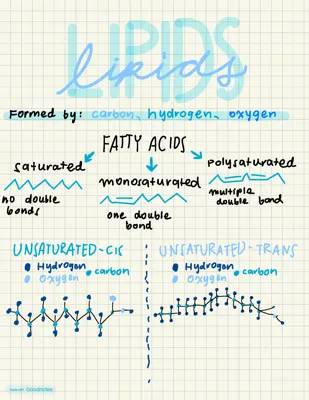 LIPIDS
lipids
Formed by: carbon, hydrogen, oxygen
FATTY ACIDS
saturated
no double
bonds
monosaturated
one double
bond
polysaturated
multiple
double bond
UNSATURATED-CIS
Hydrogen
carbon
Oxygen
UNSATURATED-TRANS
Hydrogen
carbon
Oxygen
Made with Goodnotes